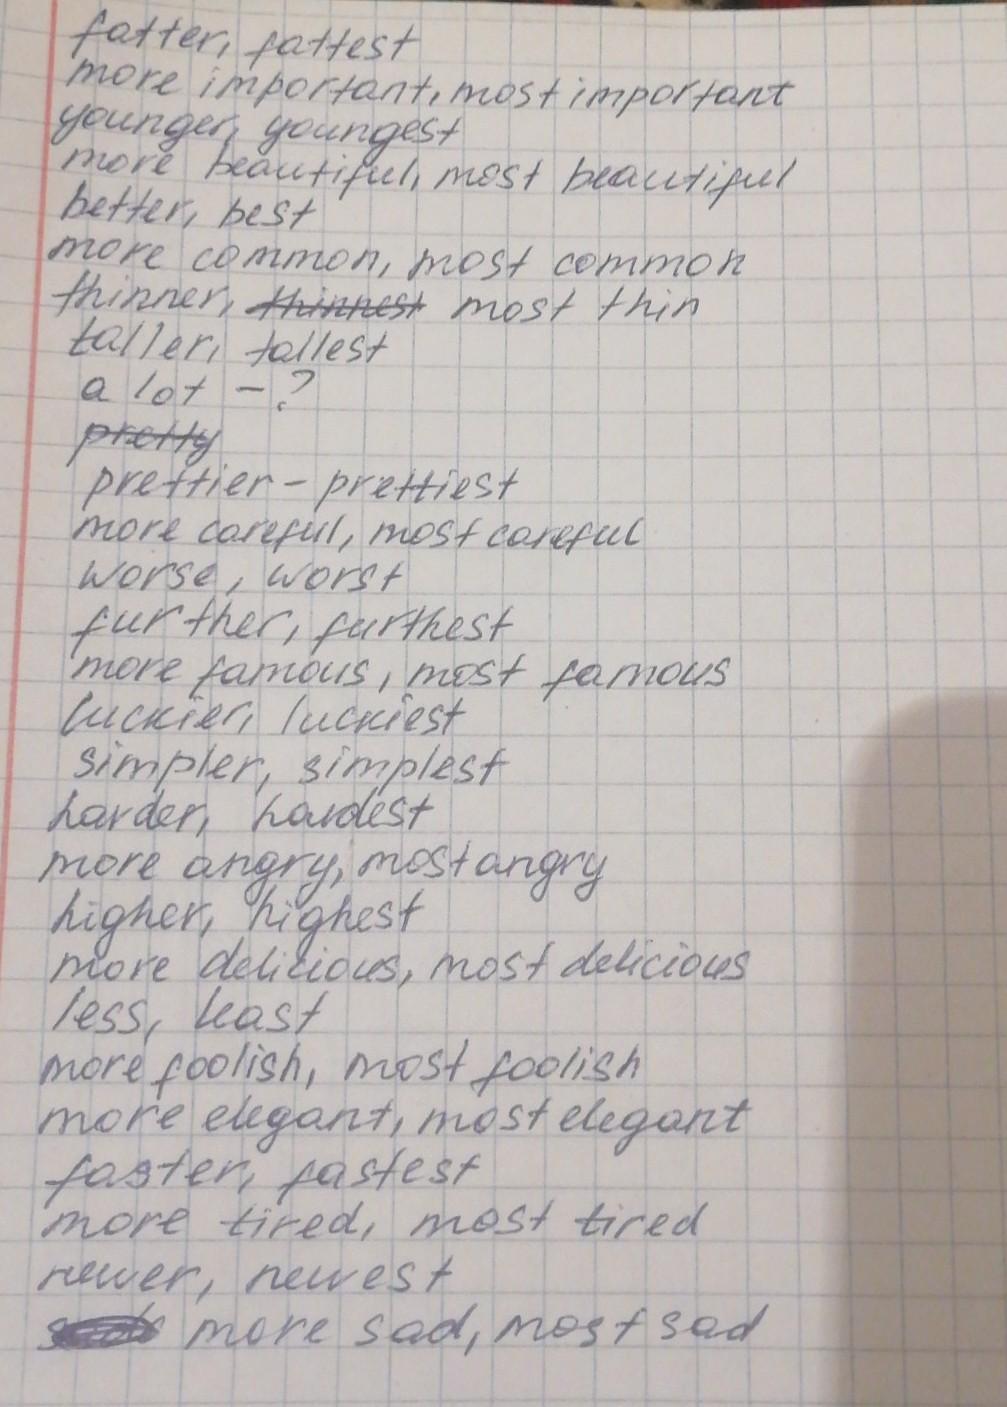 fatter, fattest
more important, most important
younger, youngest
more beautiful, most beautiful
better, best
more common, most common
thinner, thinnest most thin
taller, tallest
a lot - ?
pretty
prettier - prettiest
more careful, most careful
worse, worst
further, furthest
more famous, most famous
luckier, luckiest
simpler, simplest
harder, hardest
more angry, most angry
higher, highest
more delicious, most delicious
less, least
more foolish, most foolish
more elegant, most elegant
faster, fastest
more tired, most tired
newer, newest
more sad, most sad